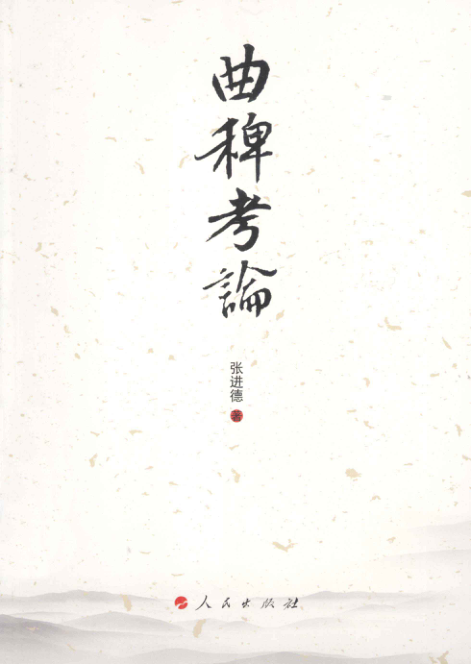 曲稗考論
张进德 著
人民出版社